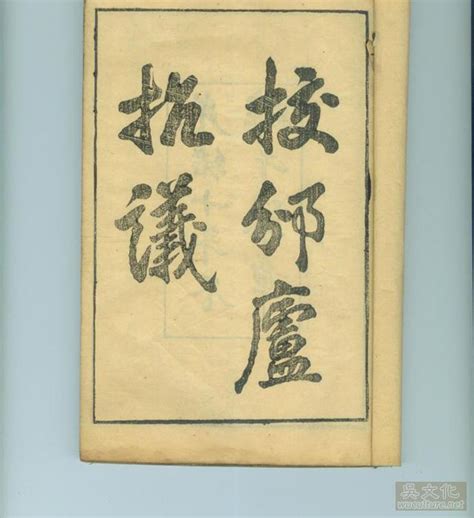 挍邠廬
抗議
吳文化
wuculture.net